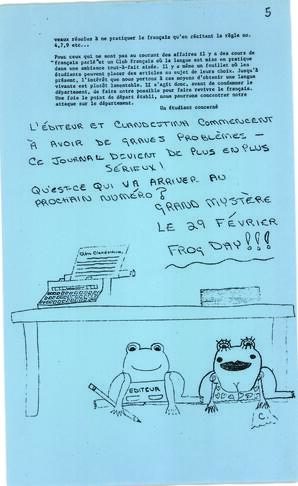 5
veaux résolus à ne pratiquer le français qu'en récitant la règle no.
4,7,9 etc...
Pour ceux qui ne sont pas au courant des affaires il y a des cours de
"français parlé" et un Club Français où la langue est mise en pratique
dans une ambiance tout-à-fait aisée. Il y a même un feuillet où les
étudiants peuvent placer des articles au sujet de leurs choix. Jusqu'à
présent, l'intérêt que nous portons à ces moyens d'obtenir une langue
vivante est plutôt lamentable. Il s'agit donc, avant de condamner le
département, de faire notre possible pour faire revivre le français.
Une fois le point de départ établi, nous pourrons concentrer notre
attaque sur le département.
Un étudiant concerné
L'ÉDITEUR ET CLANDESTINA COMMENCENT
À AVOIR DE GRAVES PROBLÈMES -
CE JOURNAL DEVIENT DE PLUS EN PLUS
SÉRIEUX!
QU'EST-CE QUI VA ARRIVER AU
PROCHAIN NUMÉRO?
GRAND MYSTÈRE
LE 29 FÉVRIER
FROG DAY!!!
EDITEUR
C.